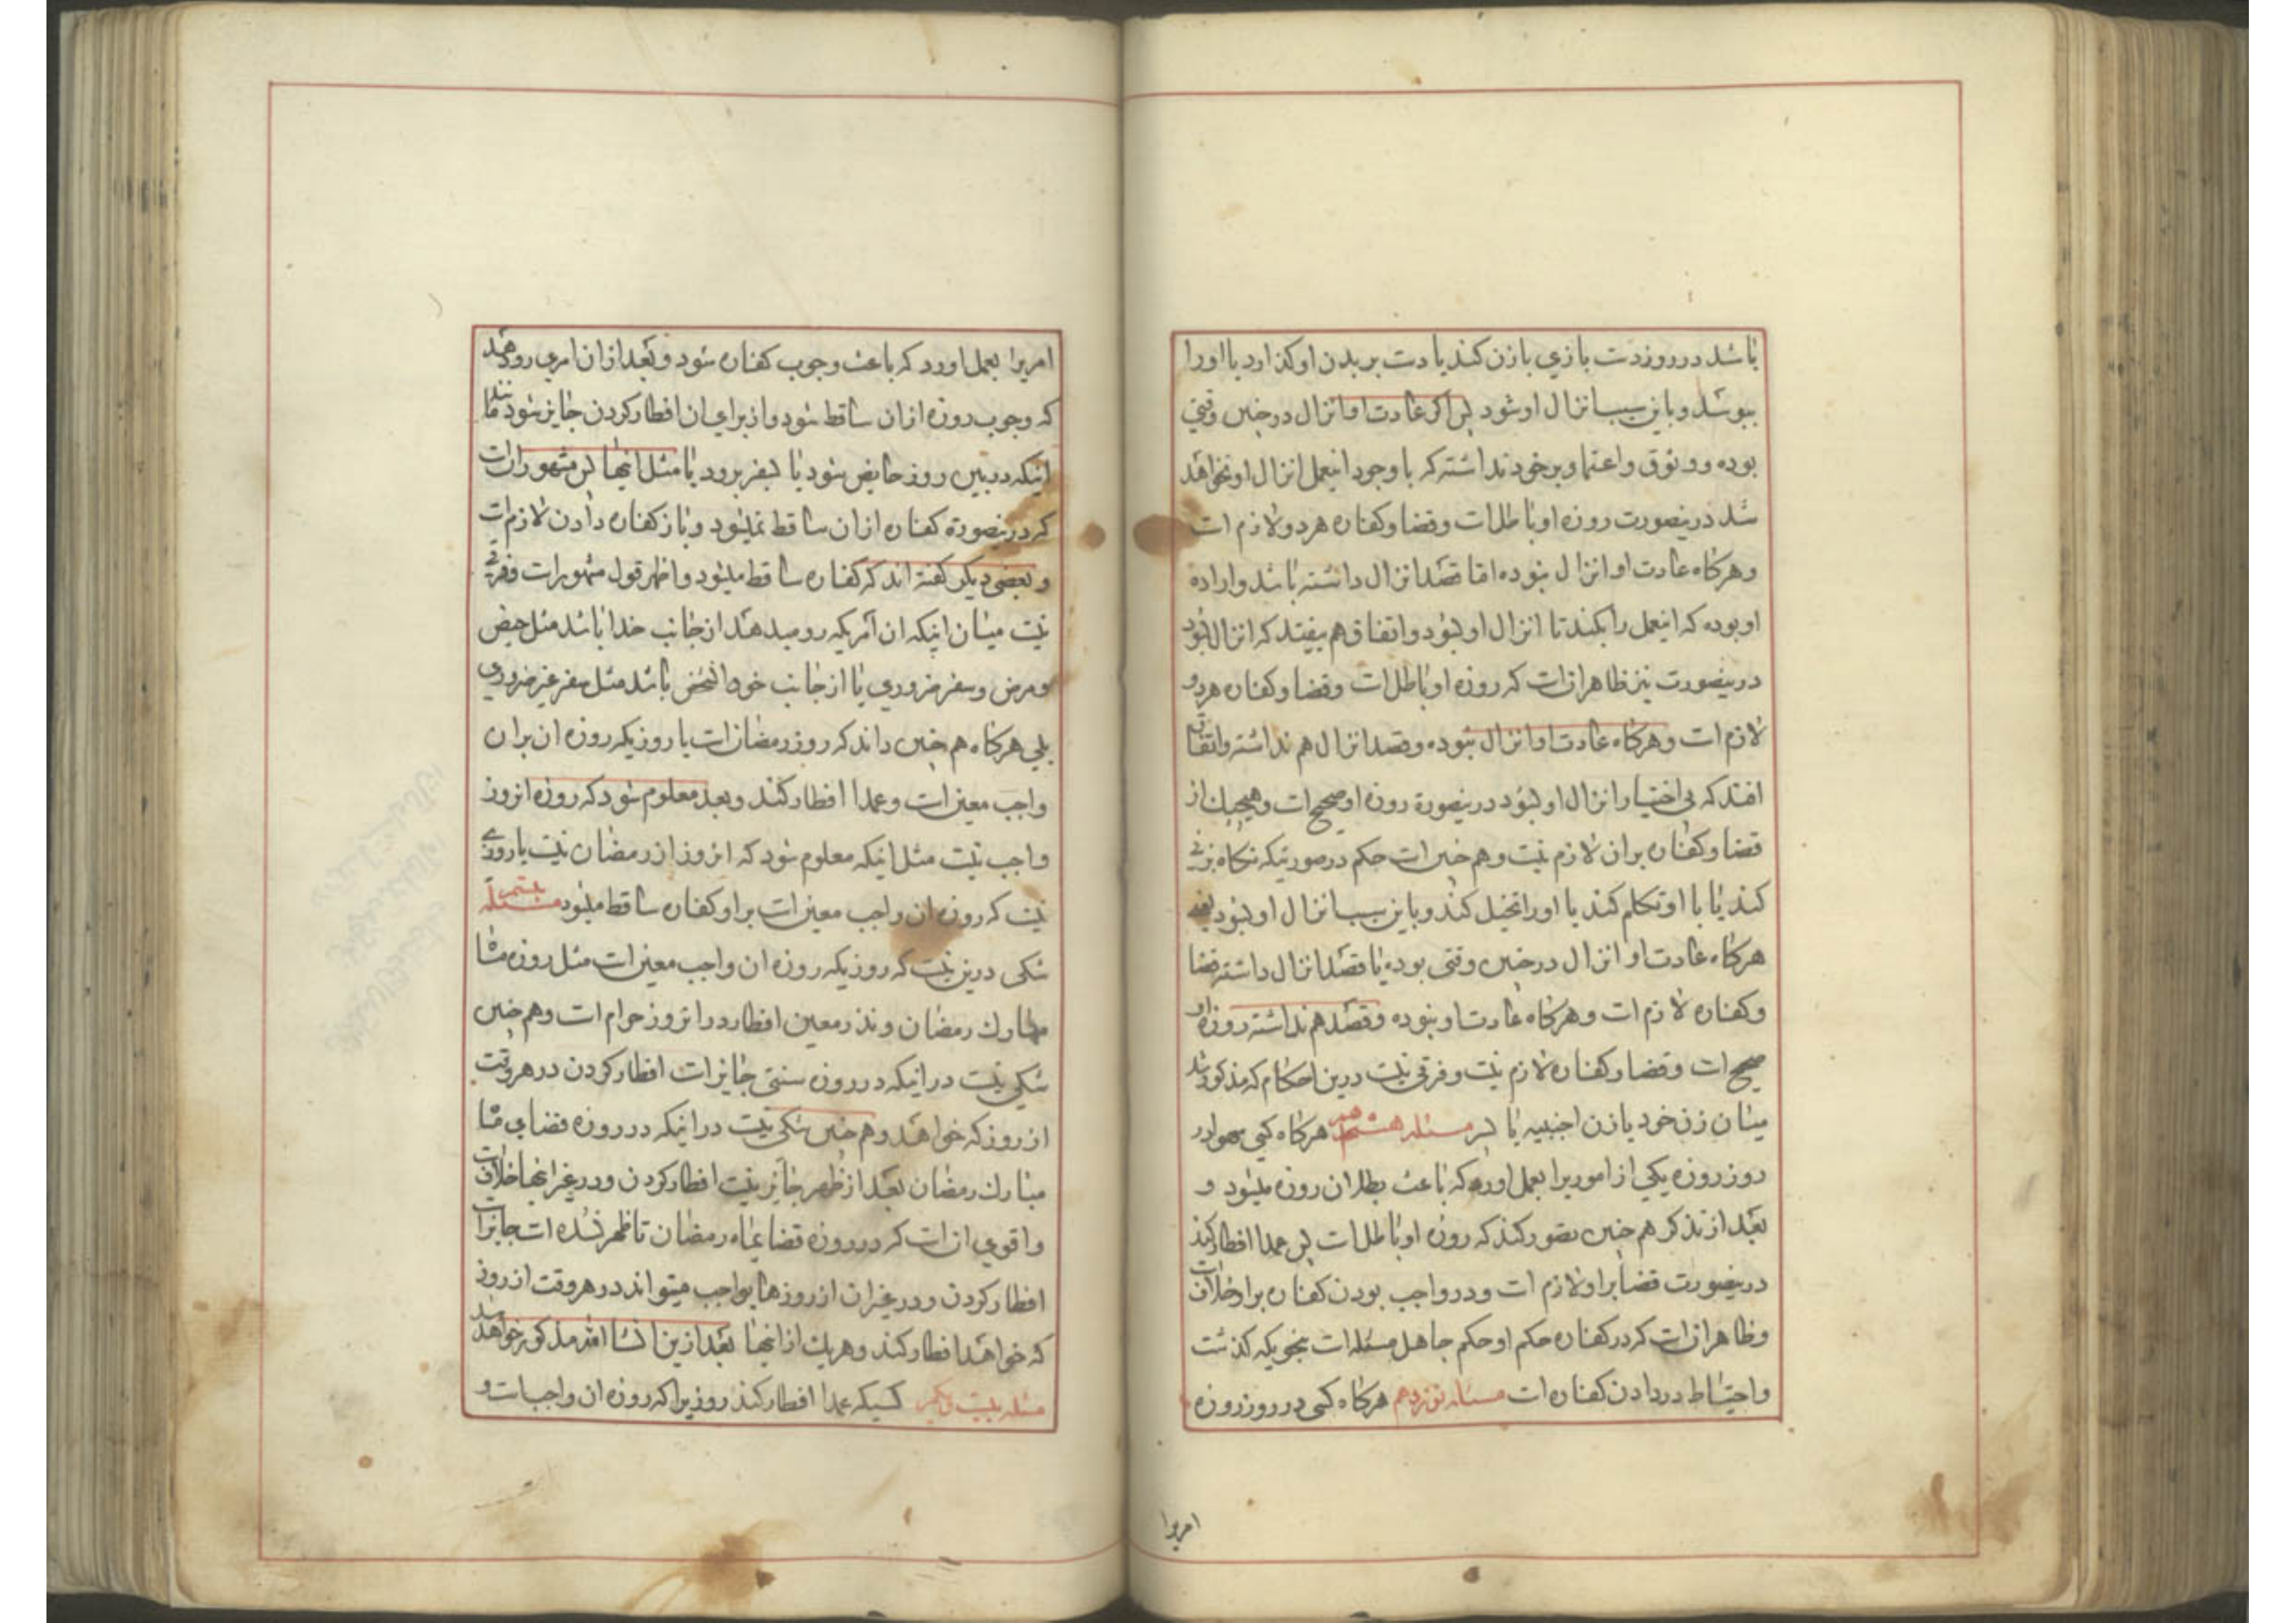 باشد در روز دست بازی با زن کند یا دست بر بدن او کذارد یا او را
ببوسد و باین سبب انزال او شود پس اکر عادت او انزال در چنین وقتی
بوده و وثوق و اعتماد بر خود نداشته که با وجود اینعمل انزال او نخواهد
شد درینصورت روزه او باطل است و قضا و کفاره هر دو لازم است
و هرکاه عادت او انزال نبوده اما قصد انزال داشته باشد و اراده
او بوده که اینعمل را بکند تا انزال او بشود و اتفاق هم بیفتد که انزال بشود
درینصورت نیز ظاهر انست که روزه او باطل است و قضا و کفاره هر دو
لازم است و هرکاه عادت او انزال نبوده و قصد انزال هم نداشته و اتفاق
افتد که بی اختیار انزال او بشود درینصورة روزه او صحیح است و هیچیک از
قضا و کفاره بر ان لازم نیست و هم چنین است حکم در صورتیکه نکاه بزنی
کند یا با او تکلم کند یا او را تخیل کند و باین سبب انزال او بشود یعنی
هرکاه عادت او انزال در چنین وقتی بوده یا قصد انزال داشته قضا
و کفاره لازم است و هرکاه عادت او نبوده و قصد هم نداشته روزه او
صحیح است و قضا و کفاره لازم نیست و فرقی نیست درین احکام که مذکور شد
میان زن خود یا زن اجنبیه یا پسر مسئله هشتدهم هرکاه کسی سهوا در
روز روزه یکی از اموریرا بعمل اورد که باعث بطلان روزه میشود و
بعد از تذکر هم چنین تصور کند که روزه او باطل است پس عمدا افطار کند
درینصورت قضا بر او لازم است و در واجب بودن کفاره بر او خلافست
و ظاهر انست که در کفاره حکم او حکم جاهل مسئله است بنحویکه کذشت
و احتیاط در دادن کفاره است مسئله نوزدهم هرکاه کسی در روز روزه
امریرا
امریرا بعمل اورد که باعث وجوب کفاره شود و بعد از ان امری رو دهد
که وجوب روزه از ان ساقط شود و از برای ان افطار کردن جایز شود مانند
اینکه در بین روز حایض شود یا بسفر برود یا مثل اینها پس مشهور انست
که درینصورة کفاره از ان ساقط نمیشود و باز کفاره دادن لازم است
و بعضی دیکر کفته اند که کفاره ساقط میشود و اظهر قول مشهور است و فرقی
نیست میان اینکه ان امریکه رو میدهد از جانب خدا باشد مثل حیض
و مرض و سفر ضروری یا از جانب خود انشخص باشد مثل سفر غیر ضروری
بلی هرکاه هم چنین داند که روز رمضان است یا روزیکه روزه ان بر ان
واجب معین است و عمدا افطار کند و بعد معلوم شود که روزه انروز
واجب نیست مثل اینکه معلوم شود که انروز از رمضان نیست یا روزی
نیست که روزه ان واجب معین است بر او کفاره ساقط میشود مسئله بیستم
شکی درین نیست که روزیکه روزه ان واجب معین است مثل روزه ماه
مبارک رمضان و نذر معین افطار در انروز حرام است و هم چنین
شکی نیست در اینکه در روزه سنتی جایز است افطار کردن در هر وقت
از روز که خواهد و هم چنین شکی نیست در اینکه در روزه قضای ماه
مبارک رمضان بعد از ظهر جایز نیست افطار کردن و در غیر اینها خلافست
و اقوی ان است که در روزه قضا ماه رمضان تا ظهر نشده است جایز است
افطار کردن و در غیر ان از روزهای واجب میتواند در هر وقت از روز
که خواهد افطار کند و هریک از اینها بعد ازین انشا الله مذکور خواهد شد
مسئله بیست و یکم کسیکه عمدا افطار کند روزیرا که روزه ان واجب است و